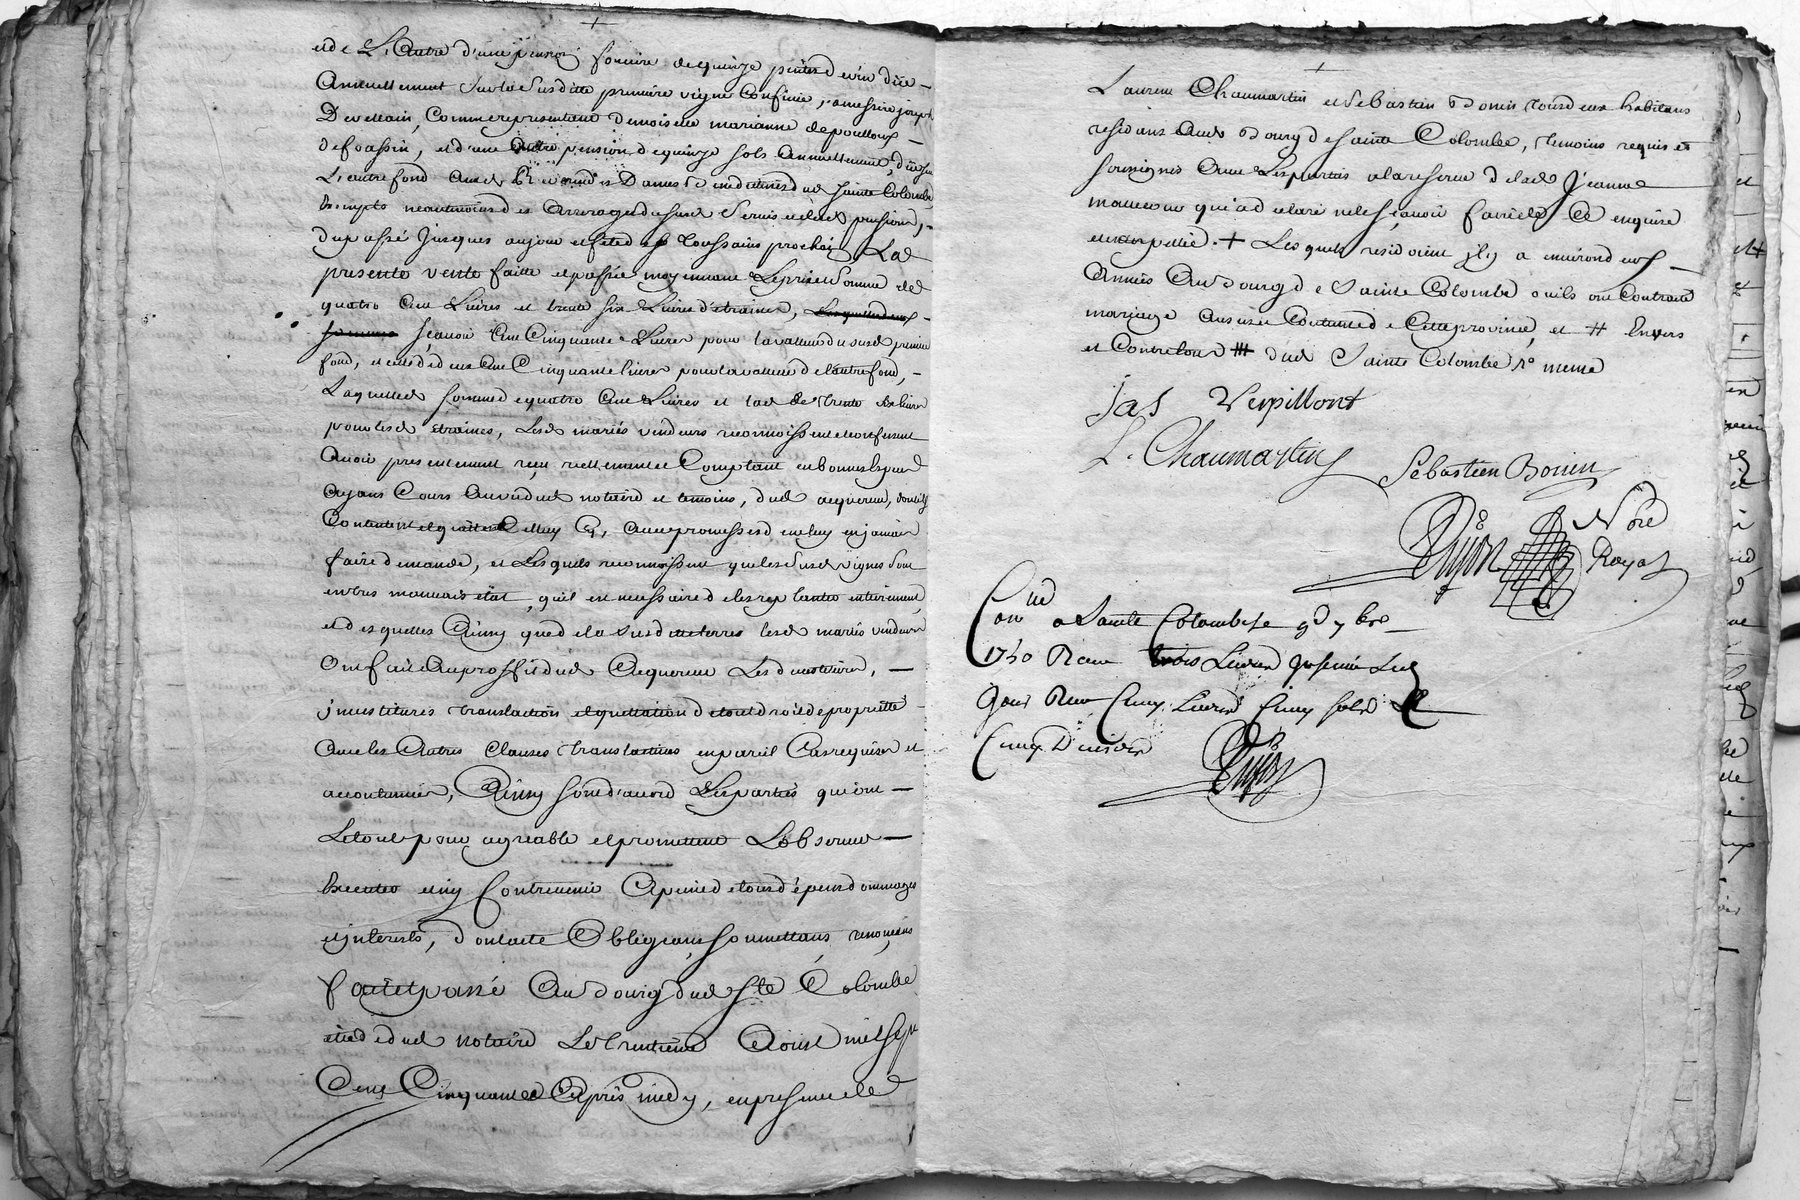 et de L'autre d'une pension fonciere de quinze pintes de vin düe
Annuellement sur la susditte premiere vigne Confinée, a messire joseph
Devellein, Comme representant demoiselle marianne depoulloux
defoassin, et d'une Autre pension de quinze sols Annuellement, düe sur
L'autre fond aux Rds Dames Benedictines dud Sainte Colombe
Exempts neantmoins des arrerages dususd Servis et desd pensions,
du passé Jusques aujour et feste de Toussains prochain La
presente vente faitte et passée moyennant Le prix et Somme de
quatre Cent Livres et trente six Livres d'etraines, Lesquelles deux
sommes sçavoir Cent Cinquante Livres pour la valleur du susd premier
fond, et celle de deux Cent Cinquante livres pour la valleur de l'autre fond,
Laquelle somme de quatre Cent Livres et lad de trente six livres
pour lesd etraines, Lesd mariés vendeurs reconnoissent et confessent
Avoir presentement reçu reellement et Comptant en bonnes Especes
ayans Cours au vu dud notaire et temoins, dud acquereur, dont ils
Contentent et quittent avec promesse de ne luy en jamais
faire demande, et Lesquels reconnoissent que les Susd vignes sont
en tres mauvais état, qu'il est necessaire de les replanter entierement,
et desquelles Ainsy que de la Susditte terres lesd mariés vendeurs
Ont fait Au proffit dud Acquereur Les demetitures,
jnvestitures translaction et quittation de tout droit de proprietté
Avec les Autres Clauses translatives en pareil Cas requises et
accoutumées, Ainsy sont d'accord Les parties qui ont
Le tout pour agreable et promettent L'observer
Executer et ny Contrevenir A peine de tous dépens dommages
et jnterests, dont acte Obligeans, soumettans, renonçans
fait et passé Au Bourg dud Ste Colombe
etude dud notaire Le trentieme Aoust mil sept
Cent Cinquante Après midy, en presence de
Laurent Chaumartin et Sebastien Bonin tous deux habitans
residans Aud Bourg de sainte Colombe, temoins requis et
soussignés Avec Les parties a la reserve de lad Jeanne
qui a declaré ne le sçavoir faire de ce enquise
et interpellée. + Lesquels residoient il y a environ deux
Années Au Bourg de Sainte Colombe ou ils ont Contracté
mariage aus us et Coutumes de Cette province, et # Envers
et Contre tous ### dud Sainte Colombe Rº meme
jas Verpillont
L. Chaumartin
Sebastien Bonin
Nore
Royal
Conlle a Sainte Colombe Le 9 d 7bre
1750 Recu trois Livres
pour Cinq Livres Cinq sols
Cinq Deniers